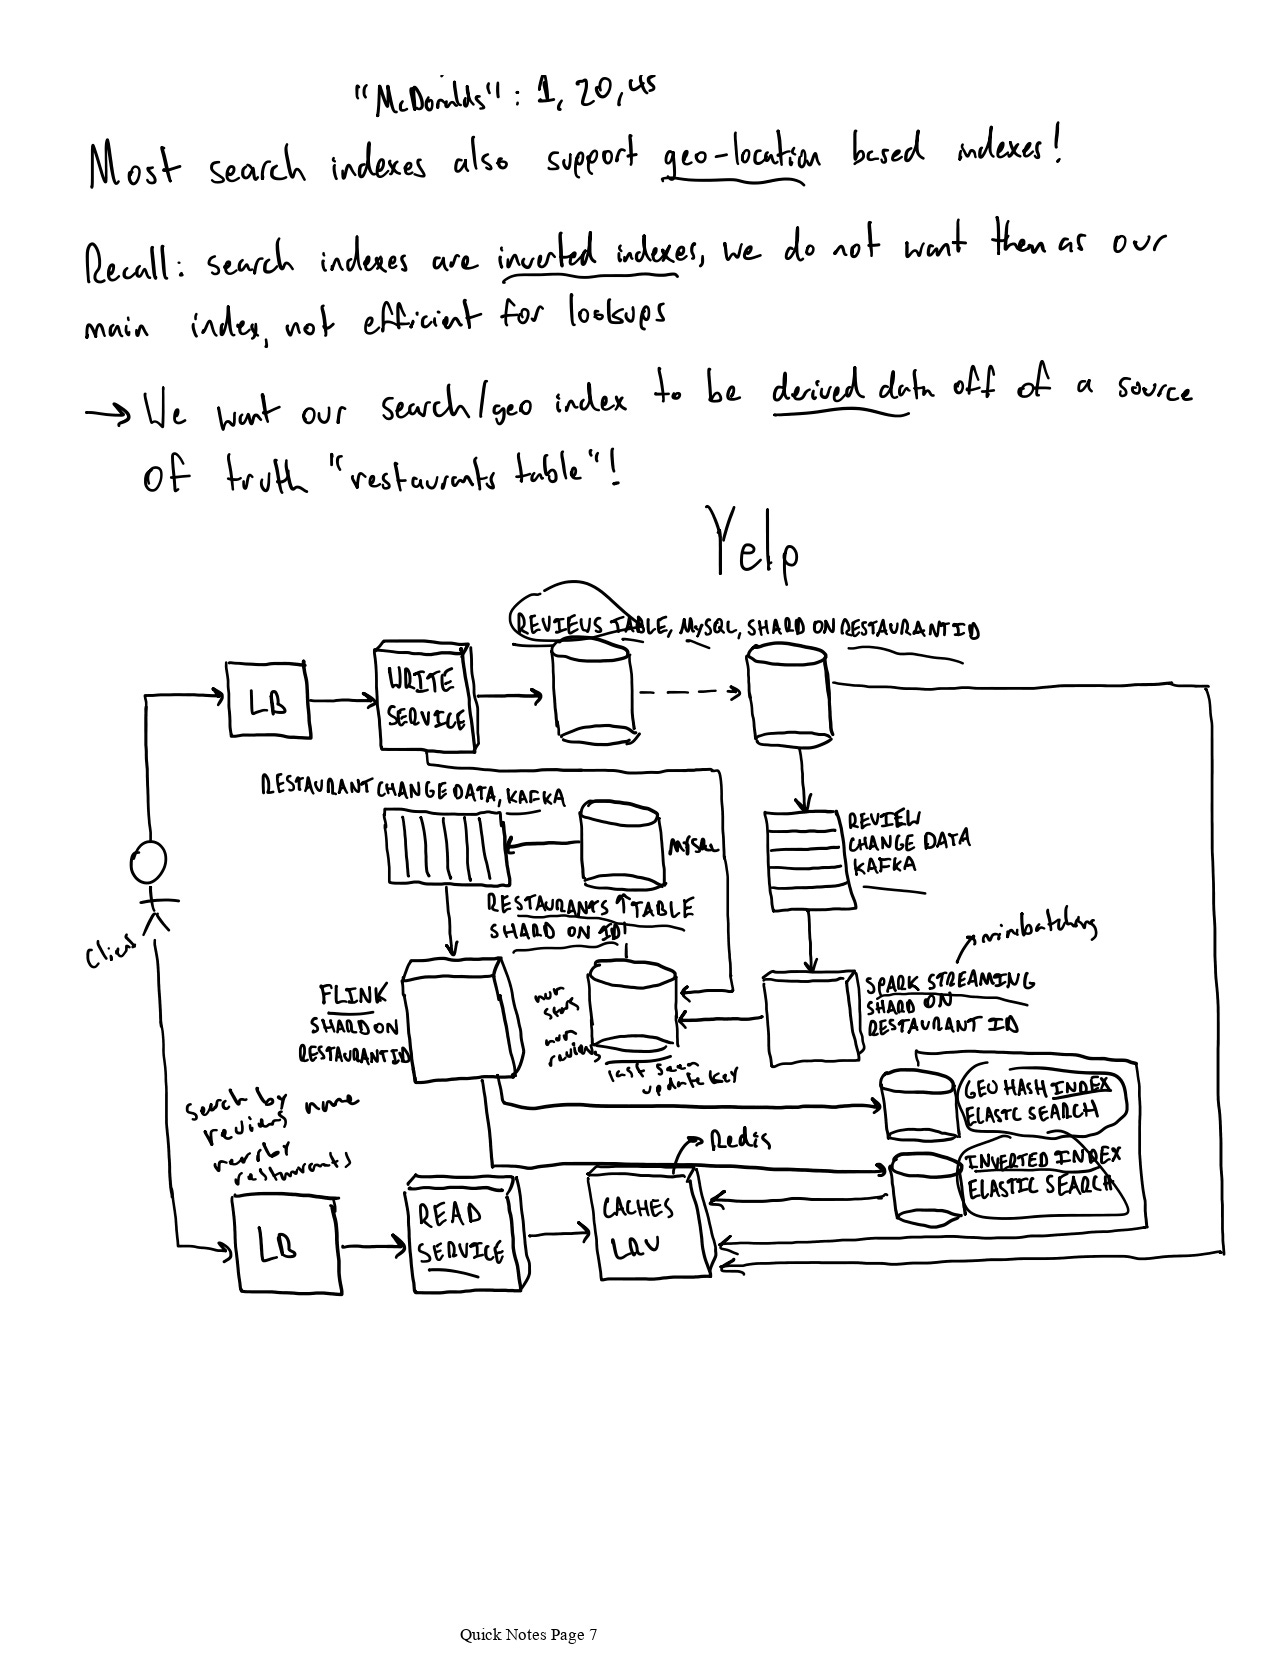 "McDonalds": 1, 20, 45
Most search indexes also support geo-location based indexes!
Recall: search indexes are inverted indexes, we do not want them as our
main index, not efficient for lookups
→ We want our search/geo index to be derived data off of a source
of truth "restaurants table"!
Yelp
REVIEWS TABLE, MySQL, SHARD ON RESTAURANT ID
LB
WRITE
SERVICE
RESTAURANT CHANGE DATA, KAFKA
MySQL
REVIEW
CHANGE DATA
KAFKA
RESTAURANTS TABLE
SHARD ON ID
Client
minibatching
FLINK
SHARD ON
RESTAURANT ID
num
stars
num
reviews
last seen
update key
SPARK STREAMING
SHARD ON
RESTAURANT ID
GEO HASH INDEX
ELASTC SEARCH
INVERTED INDEX
ELASTIC SEARCH
search by
reviews name
nearby
restaurants
Redis
LB
READ
SERVICE
CACHES
LRU
Quick Notes Page 7